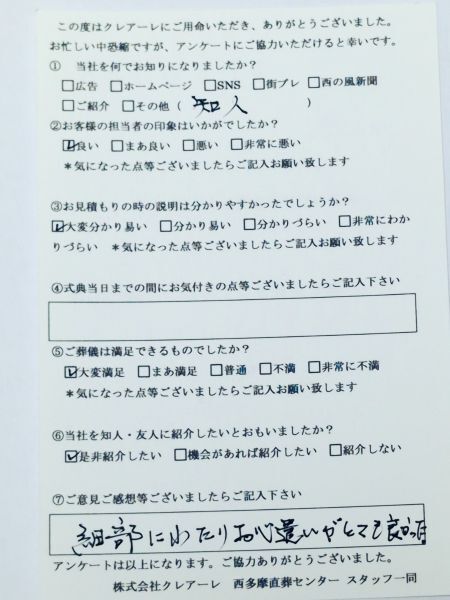 この度はクレアーレにご用命いただき、ありがとうございました。
お忙しい中恐縮ですが、アンケートにご協力いただけると幸いです。
① 当社を何でお知りになりましたか?
□広告 □ホームページ □SNS □街プレ □西の風新聞
□ご紹介 □その他( 知人 )
②お客様の担当者の印象はいかがでしたか?
☑良い □まあ良い □悪い □非常に悪い
*気になった点等ございましたらご記入お願い致します
③お見積もりの時の説明は分かりやすかったでしょうか?
☑大変分かり易い □分かり易い □分かりづらい □非常にわか
りづらい *気になった点等ございましたらご記入お願い致します
④式典当日までの間にお気付きの点等ございましたらご記入下さい
⑤ご葬儀は満足できるものでしたか?
☑大変満足 □まあ満足 □普通 □不満 □非常に不満
*気になった点等ございましたらご記入お願い致します
⑥当社を知人・友人に紹介したいとおもいましたか?
☑是非紹介したい □機会があれば紹介したい □紹介しない
⑦ご意見ご感想等ございましたらご記入下さい
細部にわたりお心遣いがとても良かった
アンケートは以上になります。ご協力ありがとうございました。
株式会社クレアーレ 西多摩直葬センター スタッフ一同